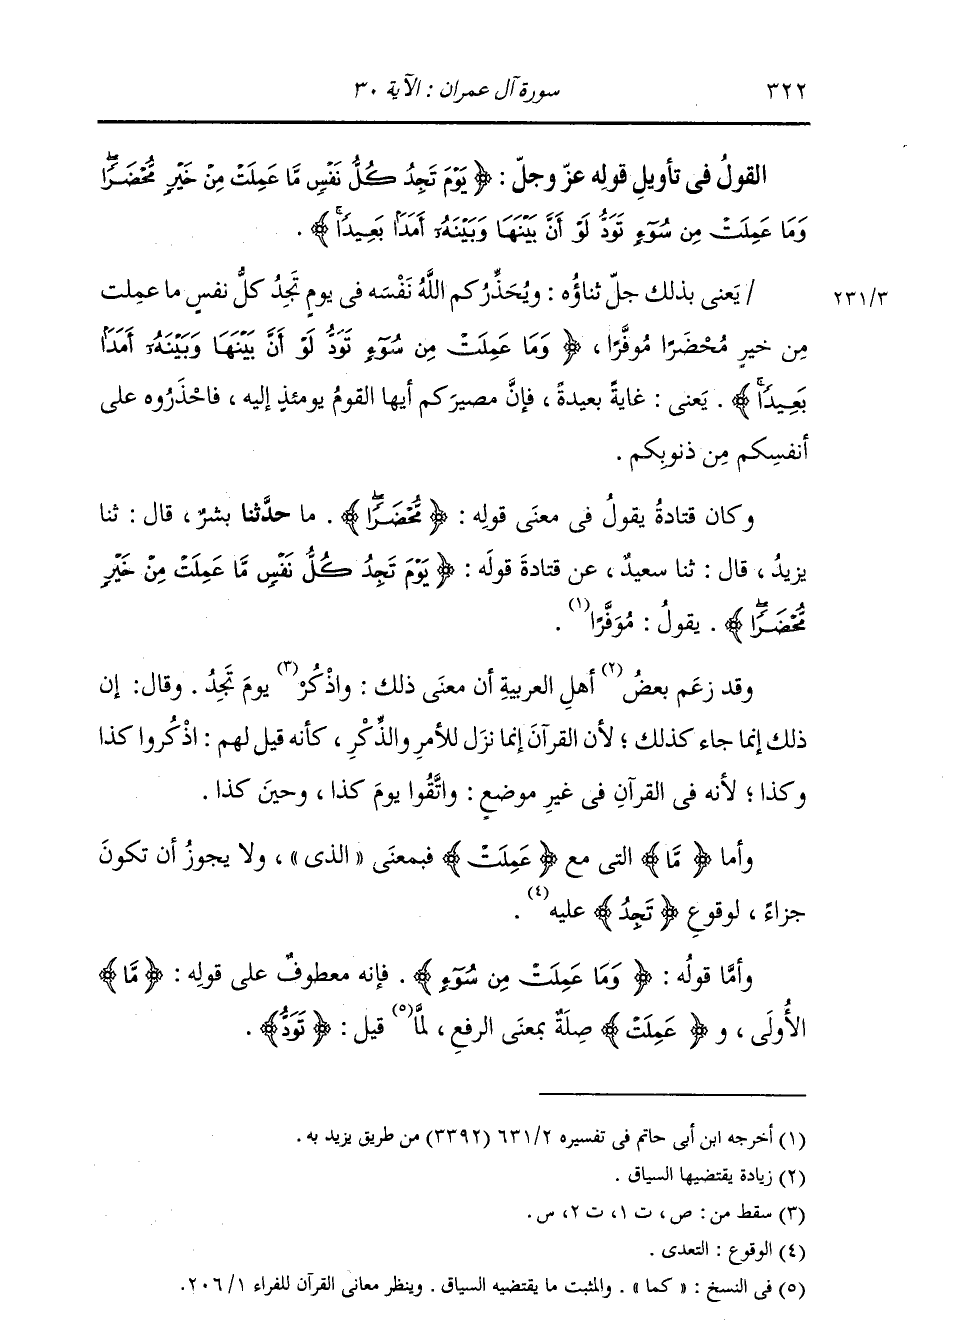 ٣٢٢ سورة آل عمران : الآية ٣٠
القولُ فى تأويلِ قولِه عزّ وجلّ : ﴿ يَوْمَ تَجِدُ كُلُّ نَفْسٍ مَّا عَمِلَتْ مِنْ خَيْرٍ مُّحْضَرًا ۖ
وَمَا عَمِلَتْ مِن سُوٓءٍ تَوَدُّ لَوْ أَنَّ بَيْنَهَا وَبَيْنَهُۥٓ أَمَدًۢا بَعِيدًا ۗ ﴾ .
٢٣١/٣ / يَعنى بذلك جلّ ثناؤُه : ويُحَذِّرُكم اللَّهُ نَفْسَه فى يومٍ تَجِدُ كلُّ نفسٍ ما عمِلت
مِن خيرٍ مُحْضَرًا مُوفَّرًا ، ﴿ وَمَا عَمِلَتْ مِن سُوٓءٍ تَوَدُّ لَوْ أَنَّ بَيْنَهَا وَبَيْنَهُۥٓ أَمَدًۢا
بَعِيدًا ۗ ﴾ . يَعنى : غايةً بعيدةً ، فإنَّ مصيرَكم أيها القومُ يومئذٍ إليه ، فاحْذَرُوه على
أنفسِكم مِن ذنوبِكم .
وكان قتادةُ يقولُ فى معنَى قولِه : ﴿ مُّحْضَرًا ۖ ﴾ . ما حدَّثنا بشرٌ ، قال : ثنا
يزيدُ ، قال : ثنا سعيدٌ ، عن قتادةَ قولَه : ﴿ يَوْمَ تَجِدُ كُلُّ نَفْسٍ مَّا عَمِلَتْ مِنْ خَيْرٍ
مُّحْضَرًا ۖ ﴾ . يقولُ : مُوَفَّرًا(١) .
وقد زعَم بعضُ(٢) أهلِ العربيةِ أن معنَى ذلك : واذْكُرْ(٣) يومَ تَجِدُ . وقال: إن
ذلك إنما جاء كذلك ؛ لأن القرآنَ إنما نزَل للأمرِ والذِّكْرِ ، كأنه قيل لهم : اذْكُروا كذا
وكذا ؛ لأنه فى القرآنِ فى غيرِ موضعٍ : واتَّقُوا يومَ كذا ، وحينَ كذا .
وأما ﴿ مَّا ﴾ التى مع ﴿ عَمِلَتْ ﴾ فبمعنَى « الذى » ، ولا يجوزُ أن تكونَ
جزاءً ، لوقوعِ ﴿ تَجِدُ ﴾ عليه(٤) .
وأمَّا قولُه : ﴿ وَمَا عَمِلَتْ مِن سُوٓءٍ ﴾ . فإنه معطوفٌ على قولِه : ﴿ مَّا ﴾
الأُولَى ، و ﴿ عَمِلَتْ ﴾ صِلَةٌ بمعنَى الرفعِ ، لمَّا(٥) قيل : ﴿ تَوَدُّ ﴾ .
(١) أخرجه ابن أبى حاتم فى تفسيره ٦٣١/٢ (٣٣٩٢) من طريق يزيد به .
(٢) زيادة يقتضيها السياق .
(٣) سقط من : ص ، ت ١، ت ٢، س .
(٤) الوقوع : التعدى .
(٥) فى النسخ : « كما » . والمثبت ما يقتضيه السياق . وينظر معانى القرآن للفراء ٢٠٦/١.